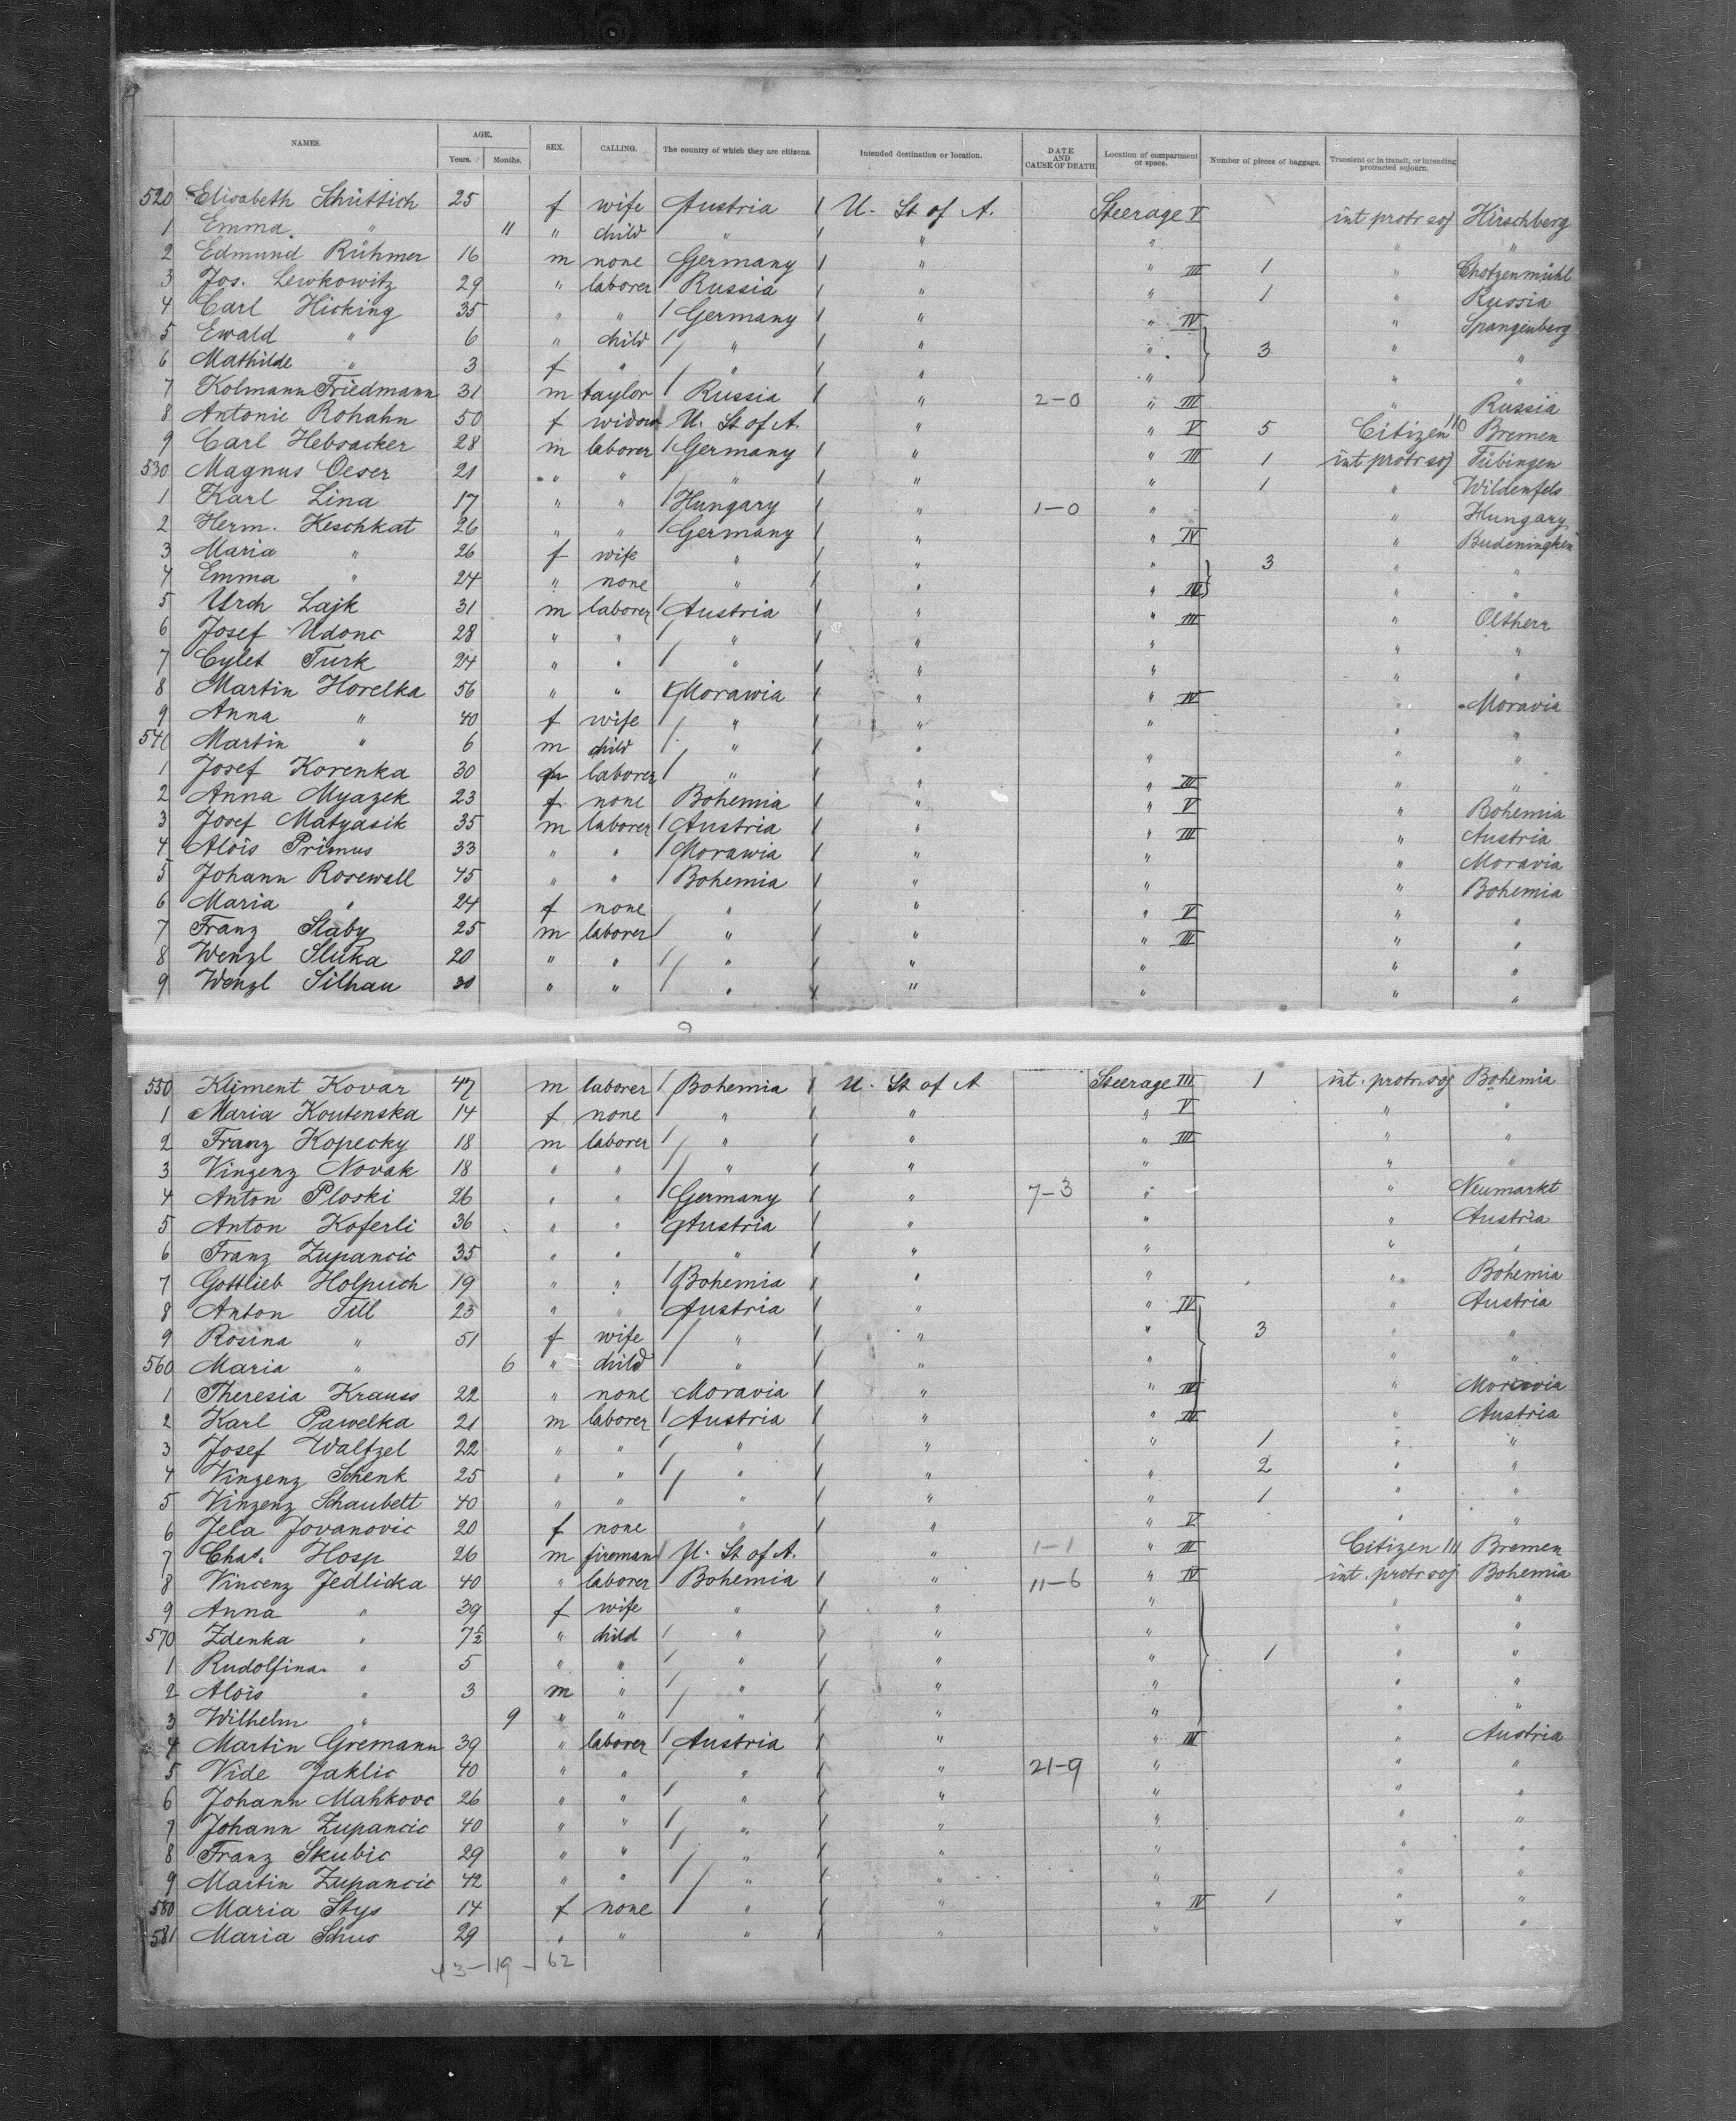 NAMES. AGE. Years. Months. SEX. CALLING. The country of which they are citizens. Intended destination or location. DATE AND CAUSE OF DEATH. Location of compartment or space. Number of pieces of baggage. Transient or in transit, or intending protracted sojourn.
520 Elisabeth Schüttich 25 f wife Austria U. St of A. Steerage V int protr soj Hirschberg
1 Emma " 11 " child " " " " "
2 Edmund Rühmer 16 m none Germany " " III 1 " Chotzenmühl
3 Jos. Lewkowitz 29 " laborer Russia " " 1 " Russia
4 Carl Hicking 35 " " Germany " " IV " Spangenberg
5 Ewald " 6 " child " " " 3 " "
6 Mathilde " 3 f " " " " " "
7 Kolmann Friedmann 31 m taylor Russia " 2-0 " III " Russia
8 Antonie Rohahn 50 f widow U. St of A. " " V 5 Citizen Bremen
9 Carl Hebsacker 28 m laborer Germany " " III 1 int protr soj Tübingen
530 Magnus Oeser 21 " " " " " 1 " Wildenfels
1 Karl Lina 17 " " Hungary " 1-0 " " Hungary
2 Herm. Keschkat 26 " " Germany " " IV " Budeningken
3 Maria " 26 f wife " " " 3 " "
4 Emma " 24 " none " " " IV " "
5 Urch Lajk 31 m laborer Austria " " III " Oltherr
6 Josef Udonc 28 " " " " " " "
7 Cylet Turk 24 " " " " " " "
8 Martin Horelka 56 " " Morawia " " IV " Moravia
9 Anna " 40 f wife " " " " "
540 Martin " 6 m child " " " " "
1 Josef Korenka 30 m laborer " " " III " "
2 Anna Myazek 23 f none Bohemia " " V " Bohemia
3 Josef Matyasik 35 m laborer Austria " " III " Austria
4 Alois Primus 33 " " Morawia " " " Moravia
5 Johann Rosewall 45 " " Bohemia " " " Bohemia
6 Maria " 24 f none " " " V " "
7 Franz Slaby 25 m laborer " " " III " "
8 Wenzl Sluka 20 " " " " " " "
9 Wenzl Silhau 30 " " " " " " "
550 Kliment Kovar 47 m laborer Bohemia U. St of A Steerage III 1 int. protr. soj Bohemia
1 Maria Koutenska 14 f none " " " V " "
2 Franz Kopecky 18 m laborer " " " III " "
3 Vinzenz Novak 18 " " " " " " "
4 Anton Ploski 26 " " Germany " 7-3 " " Neumarkt
5 Anton Koferli 36 " " Austria " " " Austria
6 Franz Zupancic 35 " " " " " " "
7 Gottlieb Holpuch 19 " " Bohemia " " " Bohemia
8 Anton Till 23 " " Austria " " IV " Austria
9 Rosina " 51 f wife " " " 3 " "
560 Maria " 6 " child " " " " "
1 Theresia Krauss 22 " none Moravia " " IV " Moravia
2 Karl Pawelka 21 m laborer Austria " " III " Austria
3 Josef Waltzel 22 " " " " " 1 " "
4 Vinzenz Schenk 25 " " " " " 2 " "
5 Vinzenz Schaubelt 40 " " " " " 1 " "
6 Jela Jovanovic 20 f none " " " V " "
7 Chas. Hosp 26 m fireman U. St of A. " 1-1 " III Citizen Bremen
8 Vincenz Jedlicka 40 " laborer Bohemia " 11-6 " IV int. protr soj Bohemia
9 Anna " 39 f wife " " " " "
570 Zdenka " 7½ " child " " " " "
1 Rudolfina " 5 " " " " " 1 " "
2 Alois " 3 m " " " " " "
3 Wilhelm " 9 " " " " " " "
4 Martin Gremann 39 " laborer Austria " " III " Austria
5 Vide Jaklic 40 " " " " 21-9 " " "
6 Johann Mahkovc 26 " " " " " " "
7 Johann Zupancic 40 " " " " " " "
8 Franz Skubic 29 " " " " " " "
9 Martin Zupancic 42 " " " " " " "
580 Maria Stys 14 f none " " " IV 1 " "
581 Maria Schus 29 " " " " " " "
43-19-62